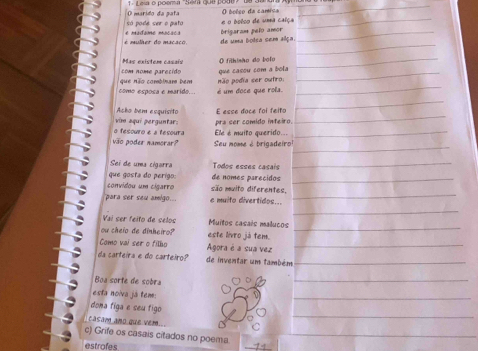 1- Leia o poema "Será que pode?" de Sandra
O marido da pata
só pode ser o pato
e madame macaca
é mulher do macaco.
Mas existem casais
com nome parecido
que não combinam bem
como esposa e marido...
Acho bem esquisito
vim aqui perguntar:
o tesouro e a tesoura
vão poder namorar?
Sei de uma cigarra
que gosta do perigo:
convidou um cigarro
para ser seu amigo...
Vai ser feito de selos
ou cheio de dinheiro?
Como vai ser o filho
da carteira e do carteiro?
Boa sorte de sobra
esta noiva já tem:
dona figa e seu figo
casam ano que vem...
O bolso da camisa
e o bolso de uma calça
brigaram pelo amor
de uma bolsa sem alça.
O filhinho do bolo
que casou com a bola
não podia ser outro:
é um doce que rola.
E esse doce foi feito
pra ser comido inteiro.
Ele é muito querido...
Seu nome é brigadeiro!
Todos esses casais
de nomes parecidos
são muito diferentes,
e muito divertidos...
Muitos casais malucos
este livro já tem.
Agora é a sua vez
de inventar um também
c) Grife os casais citados no poema.
estrofes 11